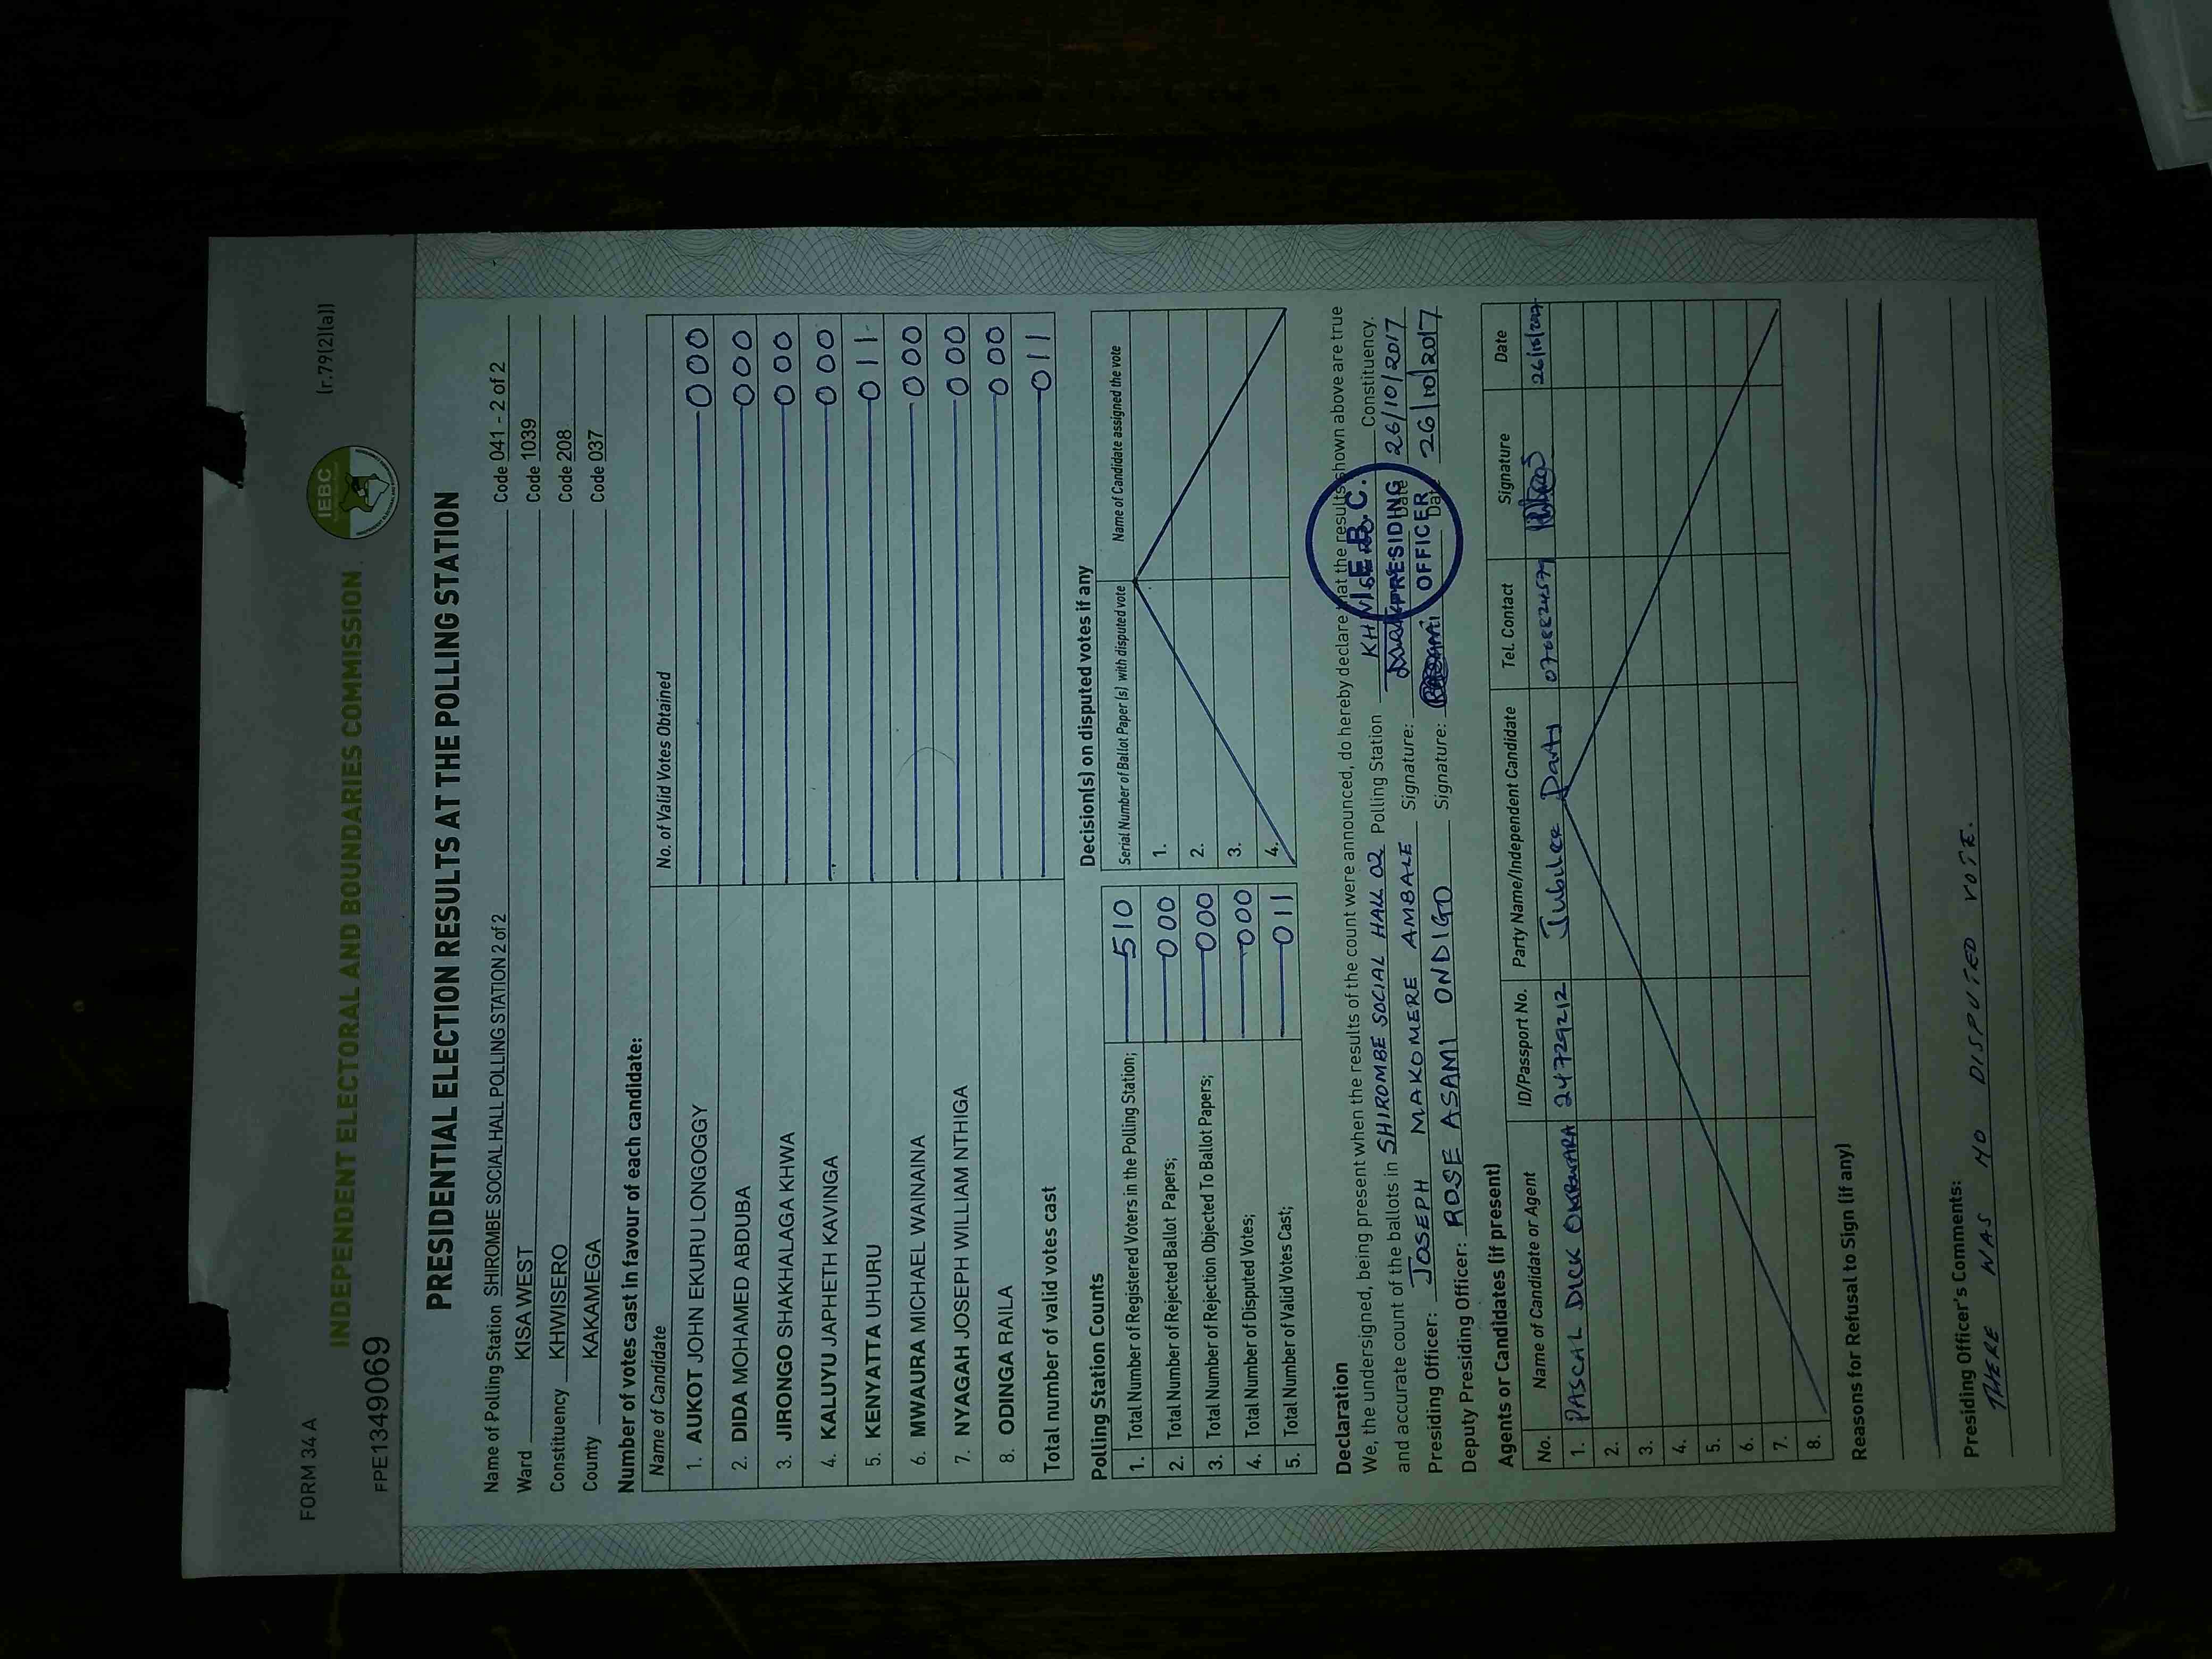 FORM 34 A
(r.79(2)(a))
INDEPENDENT ELECTORAL AND BOUNDARIES COMMISSION
IEBC
FPE1349069
PRESIDENTIAL ELECTION RESULTS AT THE POLLING STATION
Name of Polling Station SHIROMBE SOCIAL HALL POLLING STATION 2 of 2 Code 041 - 2 of 2
Ward KISA WEST Code 1039
Constituency KHWISERO Code 208
County KAKAMEGA Code 037
Number of votes cast in favour of each candidate:
Name of Candidate No. of Valid Votes Obtained
1. AUKOT JOHN EKURU LONGOGGY 000
2. DIDA MOHAMED ABDUBA 000
3. JIRONGO SHAKHALAGA KHWA 000
4. KALUYU JAPHETH KAVINGA 000
5. KENYATTA UHURU 011
6. MWAURA MICHAEL WAINAINA 000
7. NYAGAH JOSEPH WILLIAM NTHIGA 000
8. ODINGA RAILA 000
Total number of valid votes cast 011
Polling Station Counts
1. Total Number of Registered Voters in the Polling Station; 510
2. Total Number of Rejected Ballot Papers; 000
3. Total Number of Rejection Objected To Ballot Papers; 000
4. Total Number of Disputed Votes; 000
5. Total Number of Valid Votes Cast; 011
Decision(s) on disputed votes if any
Serial Number of Ballot Paper (s) with disputed vote Name of Candidate assigned the vote
1.
2.
3.
4.
Declaration
We, the undersigned, being present when the results of the count were announced, do hereby declare that the results shown above are true
and accurate count of the ballots in SHIROMBE SOCIAL HALL 02 Polling Station Constituency.
Presiding Officer: JOSEPH MAKOMERE AMBALE Signature: Date 26/10/2017
Deputy Presiding Officer: ROSE ASAMI ONDIGO Signature: Date 26/10/2017
I.E.B.C.
PRESIDING
OFFICER
Agents or Candidates (if present)
No. Name of Candidate or Agent ID/Passport No. Party Name/Independent Candidate Tel. Contact Signature Date
1. PASCAL DICK 24729212 Jubilee Party 26/10/2017
2.
3.
4.
5.
6.
7.
8.
Reasons for Refusal to Sign (if any)
Presiding Officer's Comments:
THERE WAS NO DISPUTED VOTE.